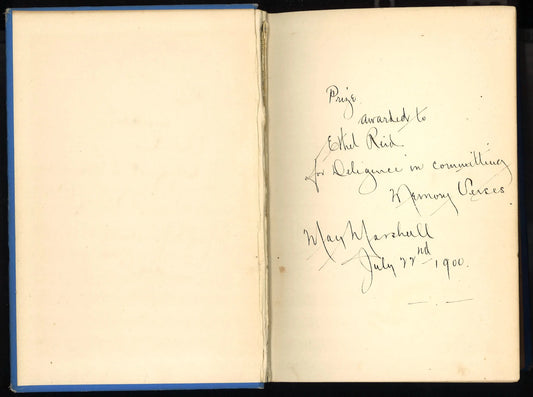 Prize
awarded to
Ethel Reid.
for Deligence in committing
Memory Verses
May Marshall
July 22nd 1900.